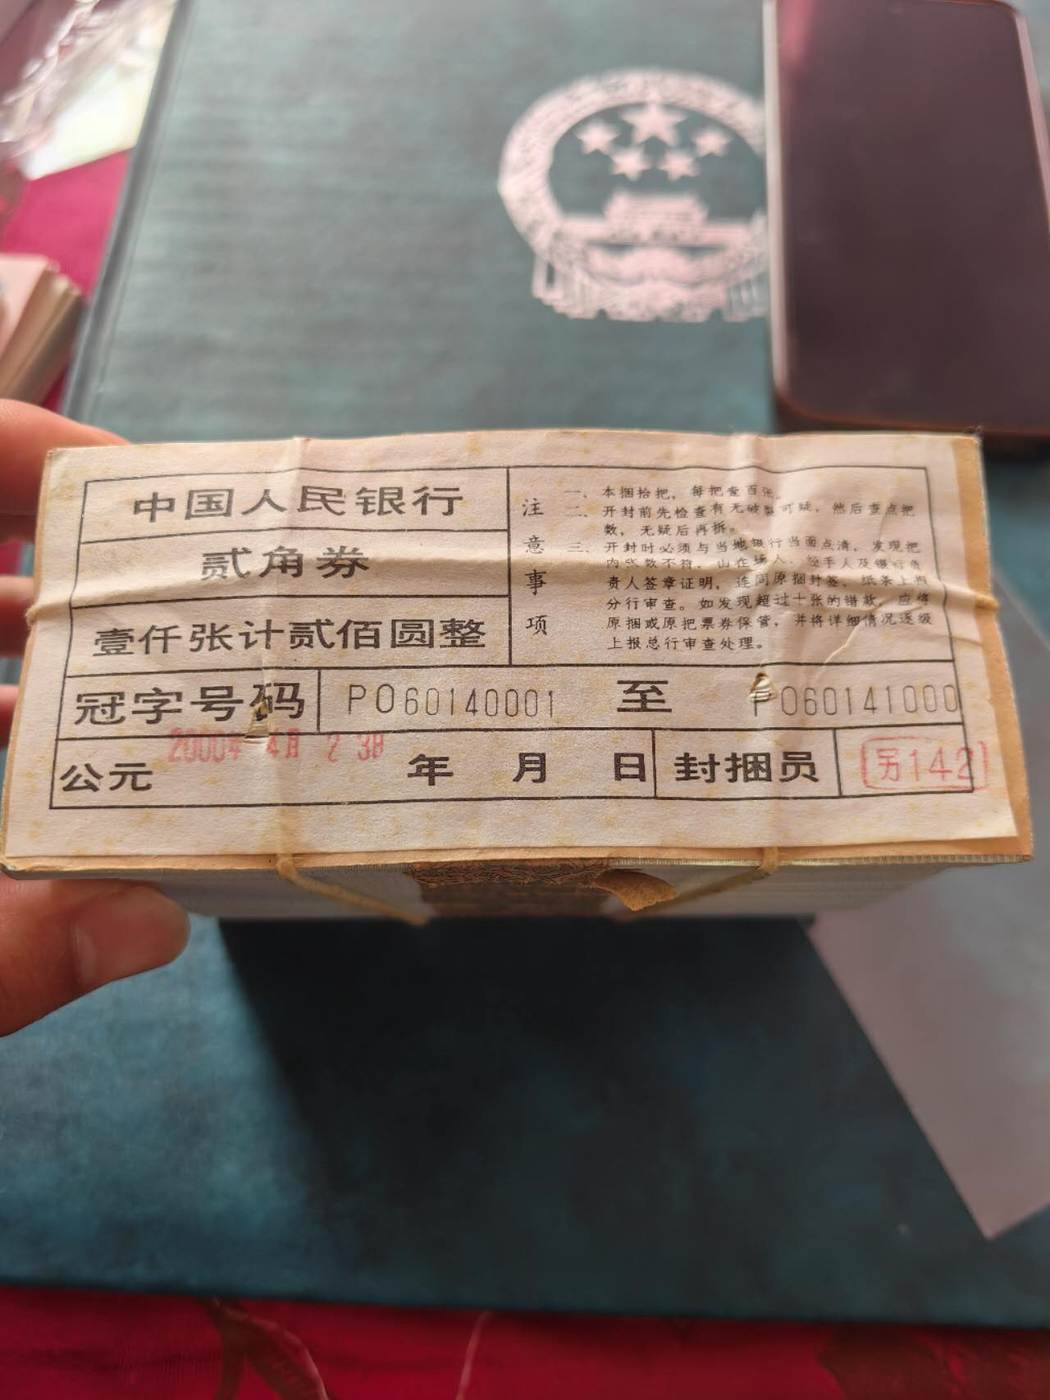 中国人民银行
贰角券
壹仟张计贰佰圆整
注意事项
一、本捆拾把，每把壹百张。
二、开封前先检查有无破裂可疑，然后查点把
数，无疑后再拆。
三、开封时必须与当地银行当面点清，发现把
内张数不符，由在场人、经手人及银行负
责人签章证明，连同原捆封签、纸条上
分行审查。如发现超过十张的错款，应将
原捆或原把票券保管，并将详细情况逐级
上报总行审查处理。
冠字号码 PO60140001 至 PO60141000
公元 2000年 4月 2 3日 年 月 日 封捆员 另142